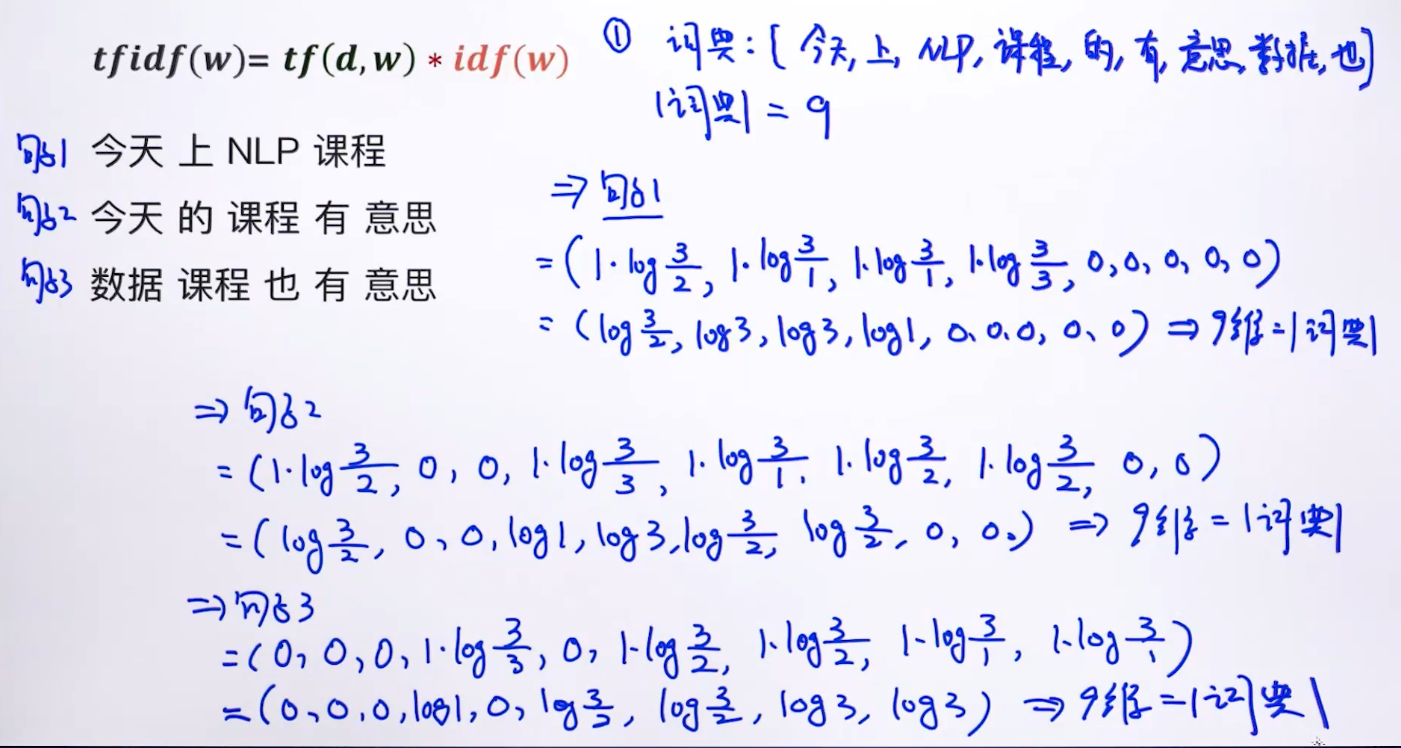 tfidf(w)= tf(d,w) * idf(w)
① 词典:[今天,上,NLP,课程,的,有,意思,数据,也]
|词典| = 9
句子1 今天 上 NLP 课程
句子2 今天 的 课程 有 意思
句子3 数据 课程 也 有 意思
⇒ 句子1
= (1·log 3/2, 1·log 3/1, 1·log 3/1, 1·log 3/3, 0, 0, 0, 0, 0)
= (log 3/2, log3, log3, log1, 0, 0, 0, 0, 0) ⇒ 9维 = |词典|
⇒ 句子2
= (1·log 3/2, 0, 0, 1·log 3/3, 1·log 3/1, 1·log 3/2, 1·log 3/2, 0, 0)
= (log 3/2, 0, 0, log1, log3, log 3/2, log 3/2, 0, 0.) ⇒ 9维 = |词典|
⇒ 句子3
= (0, 0, 0, 1·log 3/3, 0, 1·log 3/2, 1·log 3/2, 1·log 3/1, 1·log 3/1)
= (0, 0, 0, log1, 0, log 3/2, log 3/2, log3, log3) ⇒ 9维 = |词典|